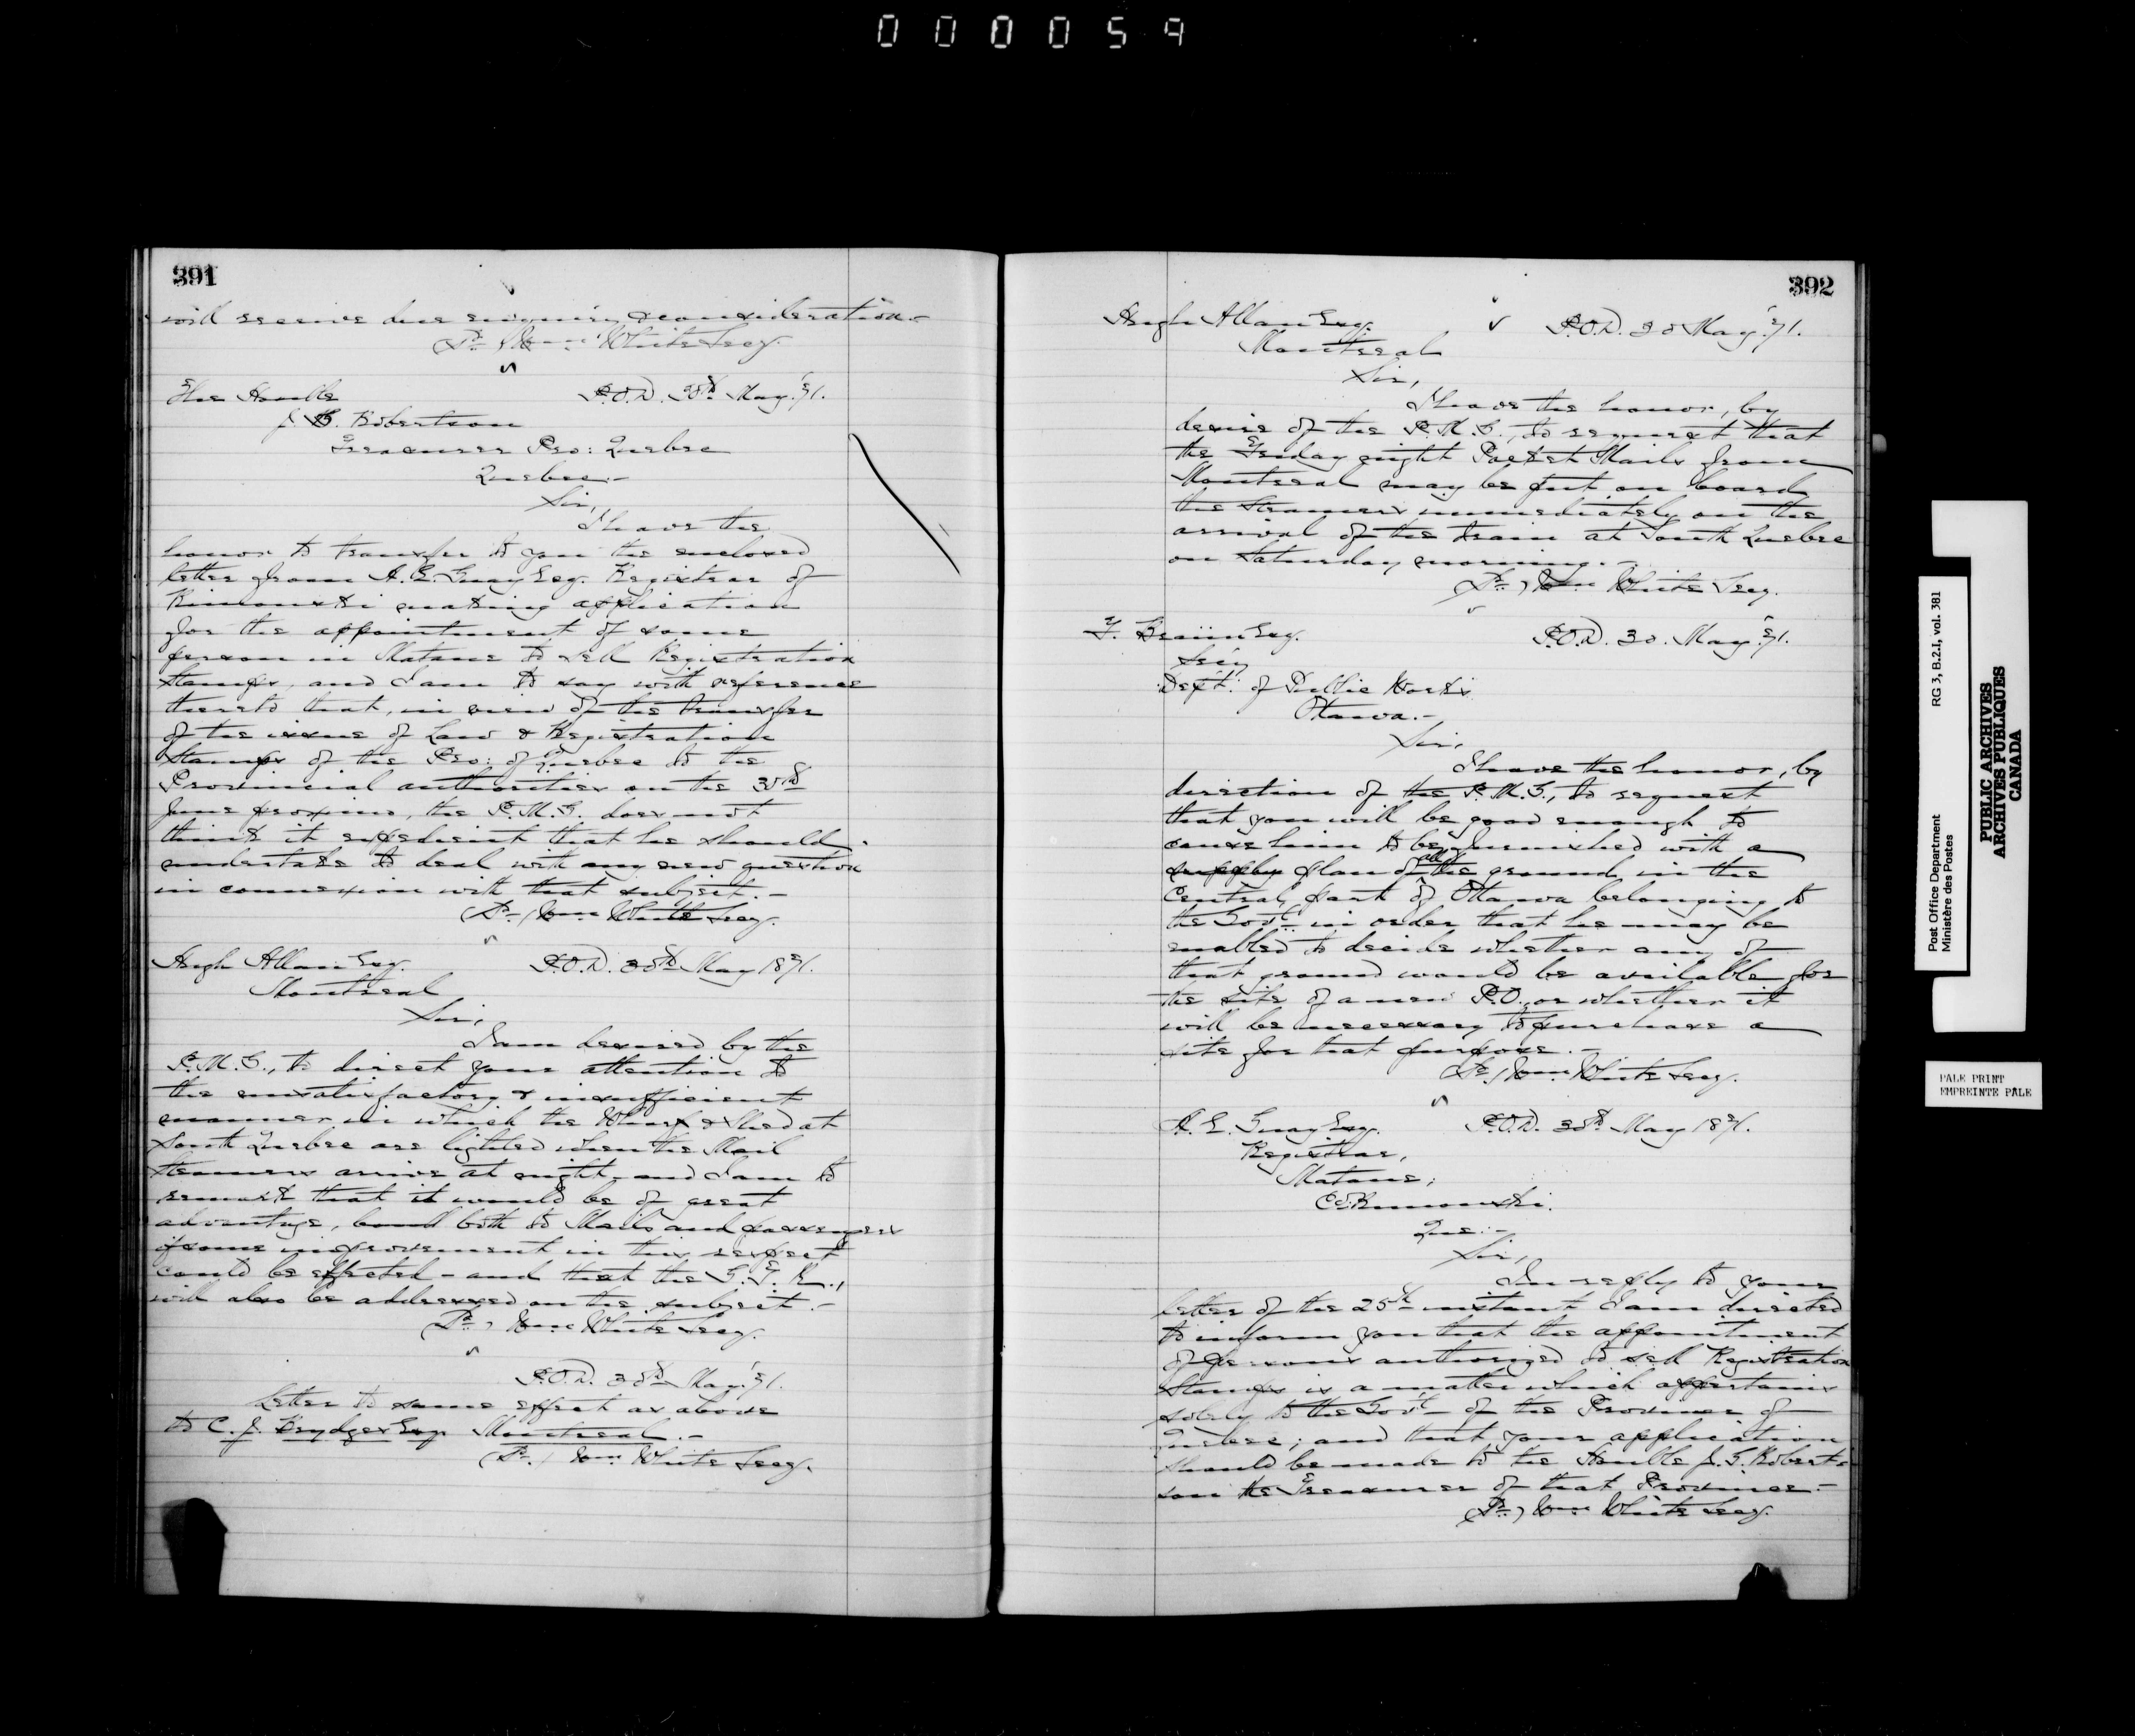 000059
391
will receive due enquiry & consideration.-
(Sd.) Wm. White Secy.
The Honble
P.O.D. 30th May '71.
J. G. Robertson
Treasurer Pro: Quebec
Quebec.-
Sir,
I have the
honor to transfer to you the enclosed
letter from A. E. Guay Esq. Registrar of
Rimouski making application
for the appointment of some
person in Matane to sell Registration
Stamps, and I am to say with reference
thereto that, in view of the transfer
of the issue of Law & Registration
Stamps of the Pro: of Quebec to the
Provincial authorities on the 30th
June proximo, the P.M.G. does not
think it expedient that he should
undertake to deal with any new question
in connexion with that subject.-
(Sd.) Wm. White Secy.
Hugh Allan Esq.
P.O.D. 30th May 1871.
Montreal
Sir,
I am desired by the
P.M.G., to direct your attention to
the unsatisfactory & insufficient
manner in which the Wharf & Shed at
South Quebec are lighted when the Mail
Steamers arrive at night, and I am to
remark that it would be of great
advantage, both to Mails and passengers
if some improvement in this respect
could be effected - and that the G.T.R.,
will also be addressed on the subject.-
(Sd.) Wm. White Secy.
P.O.D. 30th May '71.
Letter to same effect as above
to C. J. Brydges Esq. Montreal.-
(Sd.) Wm. White Secy.
392
Hugh Allan Esq.
P.O.D. 30 May '71.
Montreal
Sir,
I have the honor, by
desire of the P.M.G., to request that
the Friday night Packet Mails from
Montreal may be put on board
the Steamers immediately on the
arrival of the train at South Quebec
on Saturday morning.-
(Sd.) Wm. White Secy.
F. Braün Esq.
P.O.D. 30. May '71.
Secy
Dept. of Public Works
Ottawa.-
Sir,
I have the honor, by
direction of the P.M.G., to request
that you will be good enough to
cause him to be furnished with a
supply plan of all the ground in the
Central part of Ottawa belonging to
the Govt. in order that he may be
enabled to decide whether any of
that ground would be available for
the site of a new P.O., or whether it
will be necessary to purchase a
site for that purpose.-
(Sd.) Wm. White Secy.
A. E. Guay Esq.
P.O.D. 30th May 1871.
Registrar,
Matane;
Co. Rimouski.
Que:-
Sir,
In reply to your
letter of the 25th instant I am directed
to inform you that the appointment
of persons authorized to sell Registration
Stamps is a matter which appertains
solely to the Govt. of the Province of
Quebec; and that your application
should be made to the Honble J. G. Robert-
son the Treasurer of that Province.-
(Sd.) Wm. White Secy.
Post Office Department
Ministère des Postes
RG 3, B.2.1, vol. 381
PUBLIC ARCHIVES
ARCHIVES PUBLIQUES
CANADA
PALE PRINT
EMPREINTE PÂLE